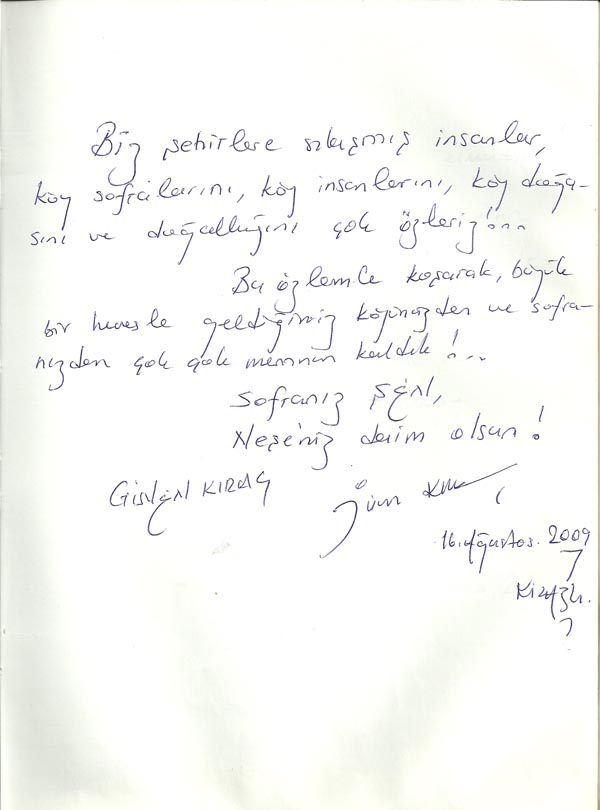 Biz şehirlere sıkışmış insanlar,
köy sofralarını, köy insanlarını, köy doğa-
sını ve doğallığını çok özleriz!...
Bu özlemle koşarak, büyük
bir hevesle geldiğimiz köyünüzden ve sofra-
nızdan çok çok memnun kaldık!...
Sofranız şen,
Neşeniz daim olsun!
KIRAÇ
16.Ağustos.2009
Kirazlı.